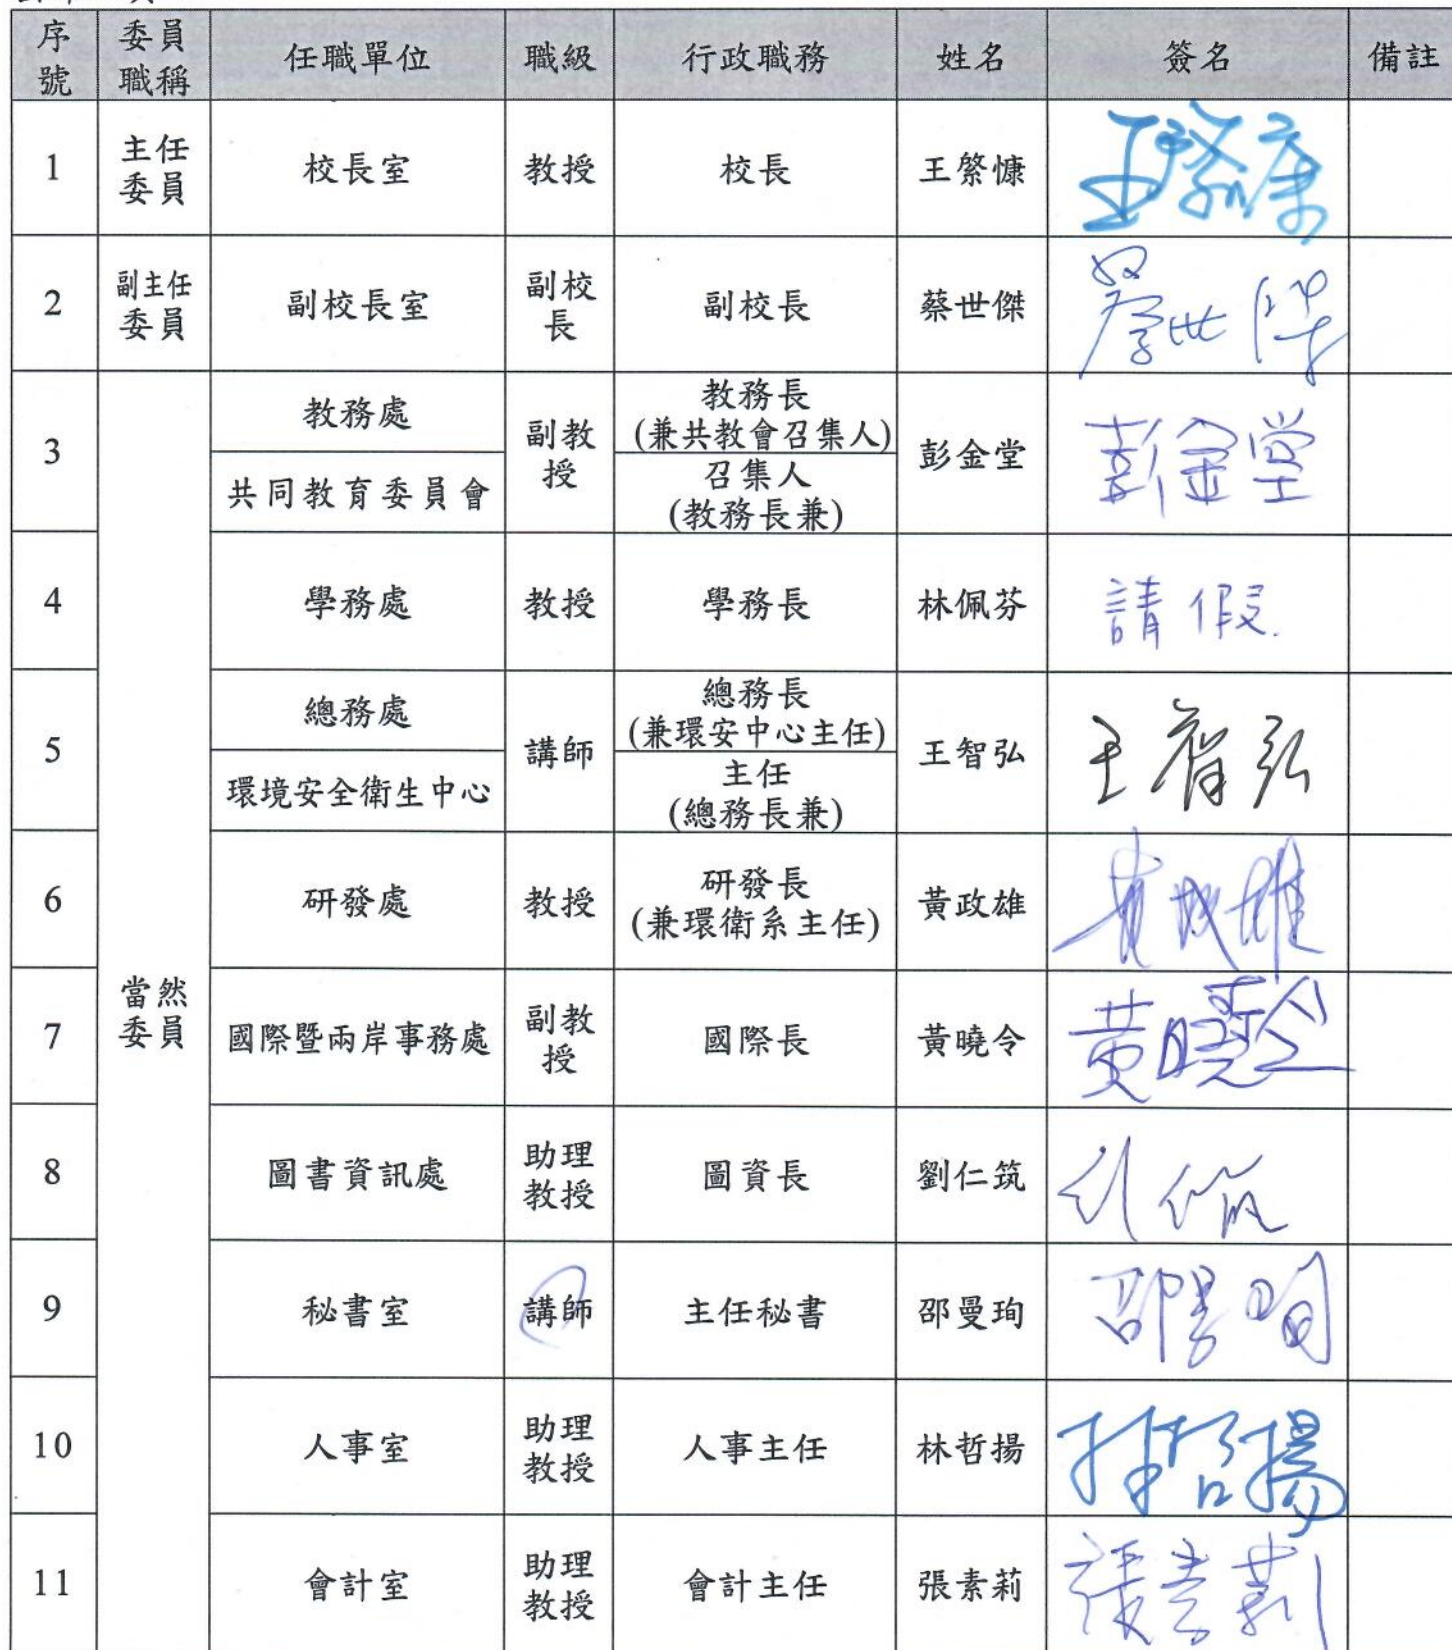 序號 委員職稱 任職單位 職級 行政職務 姓名 簽名 備註
1 主任委員 校長室 教授 校長 王綮慷 王綮慷
2 副主任委員 副校長室 副校長 副校長 蔡世傑 蔡世傑
當然委員
3 教務處 副教授 教務長(兼共教會召集人) 彭金堂 彭金堂
共同教育委員會 召集人(教務長兼)
4 學務處 教授 學務長 林佩芬 請假.
5 總務處 講師 總務長(兼環安中心主任) 王智弘 王智弘
環境安全衛生中心 主任(總務長兼)
6 研發處 教授 研發長(兼環衛系主任) 黃政雄 黃政雄
7 國際暨兩岸事務處 副教授 國際長 黃曉令 黃曉令
8 圖書資訊處 助理教授 圖資長 劉仁筑
9 秘書室 講師 主任秘書 邵曼珣 邵曼珣
10 人事室 助理教授 人事主任 林哲揚 林哲揚
11 會計室 助理教授 會計主任 張素莉 張素莉